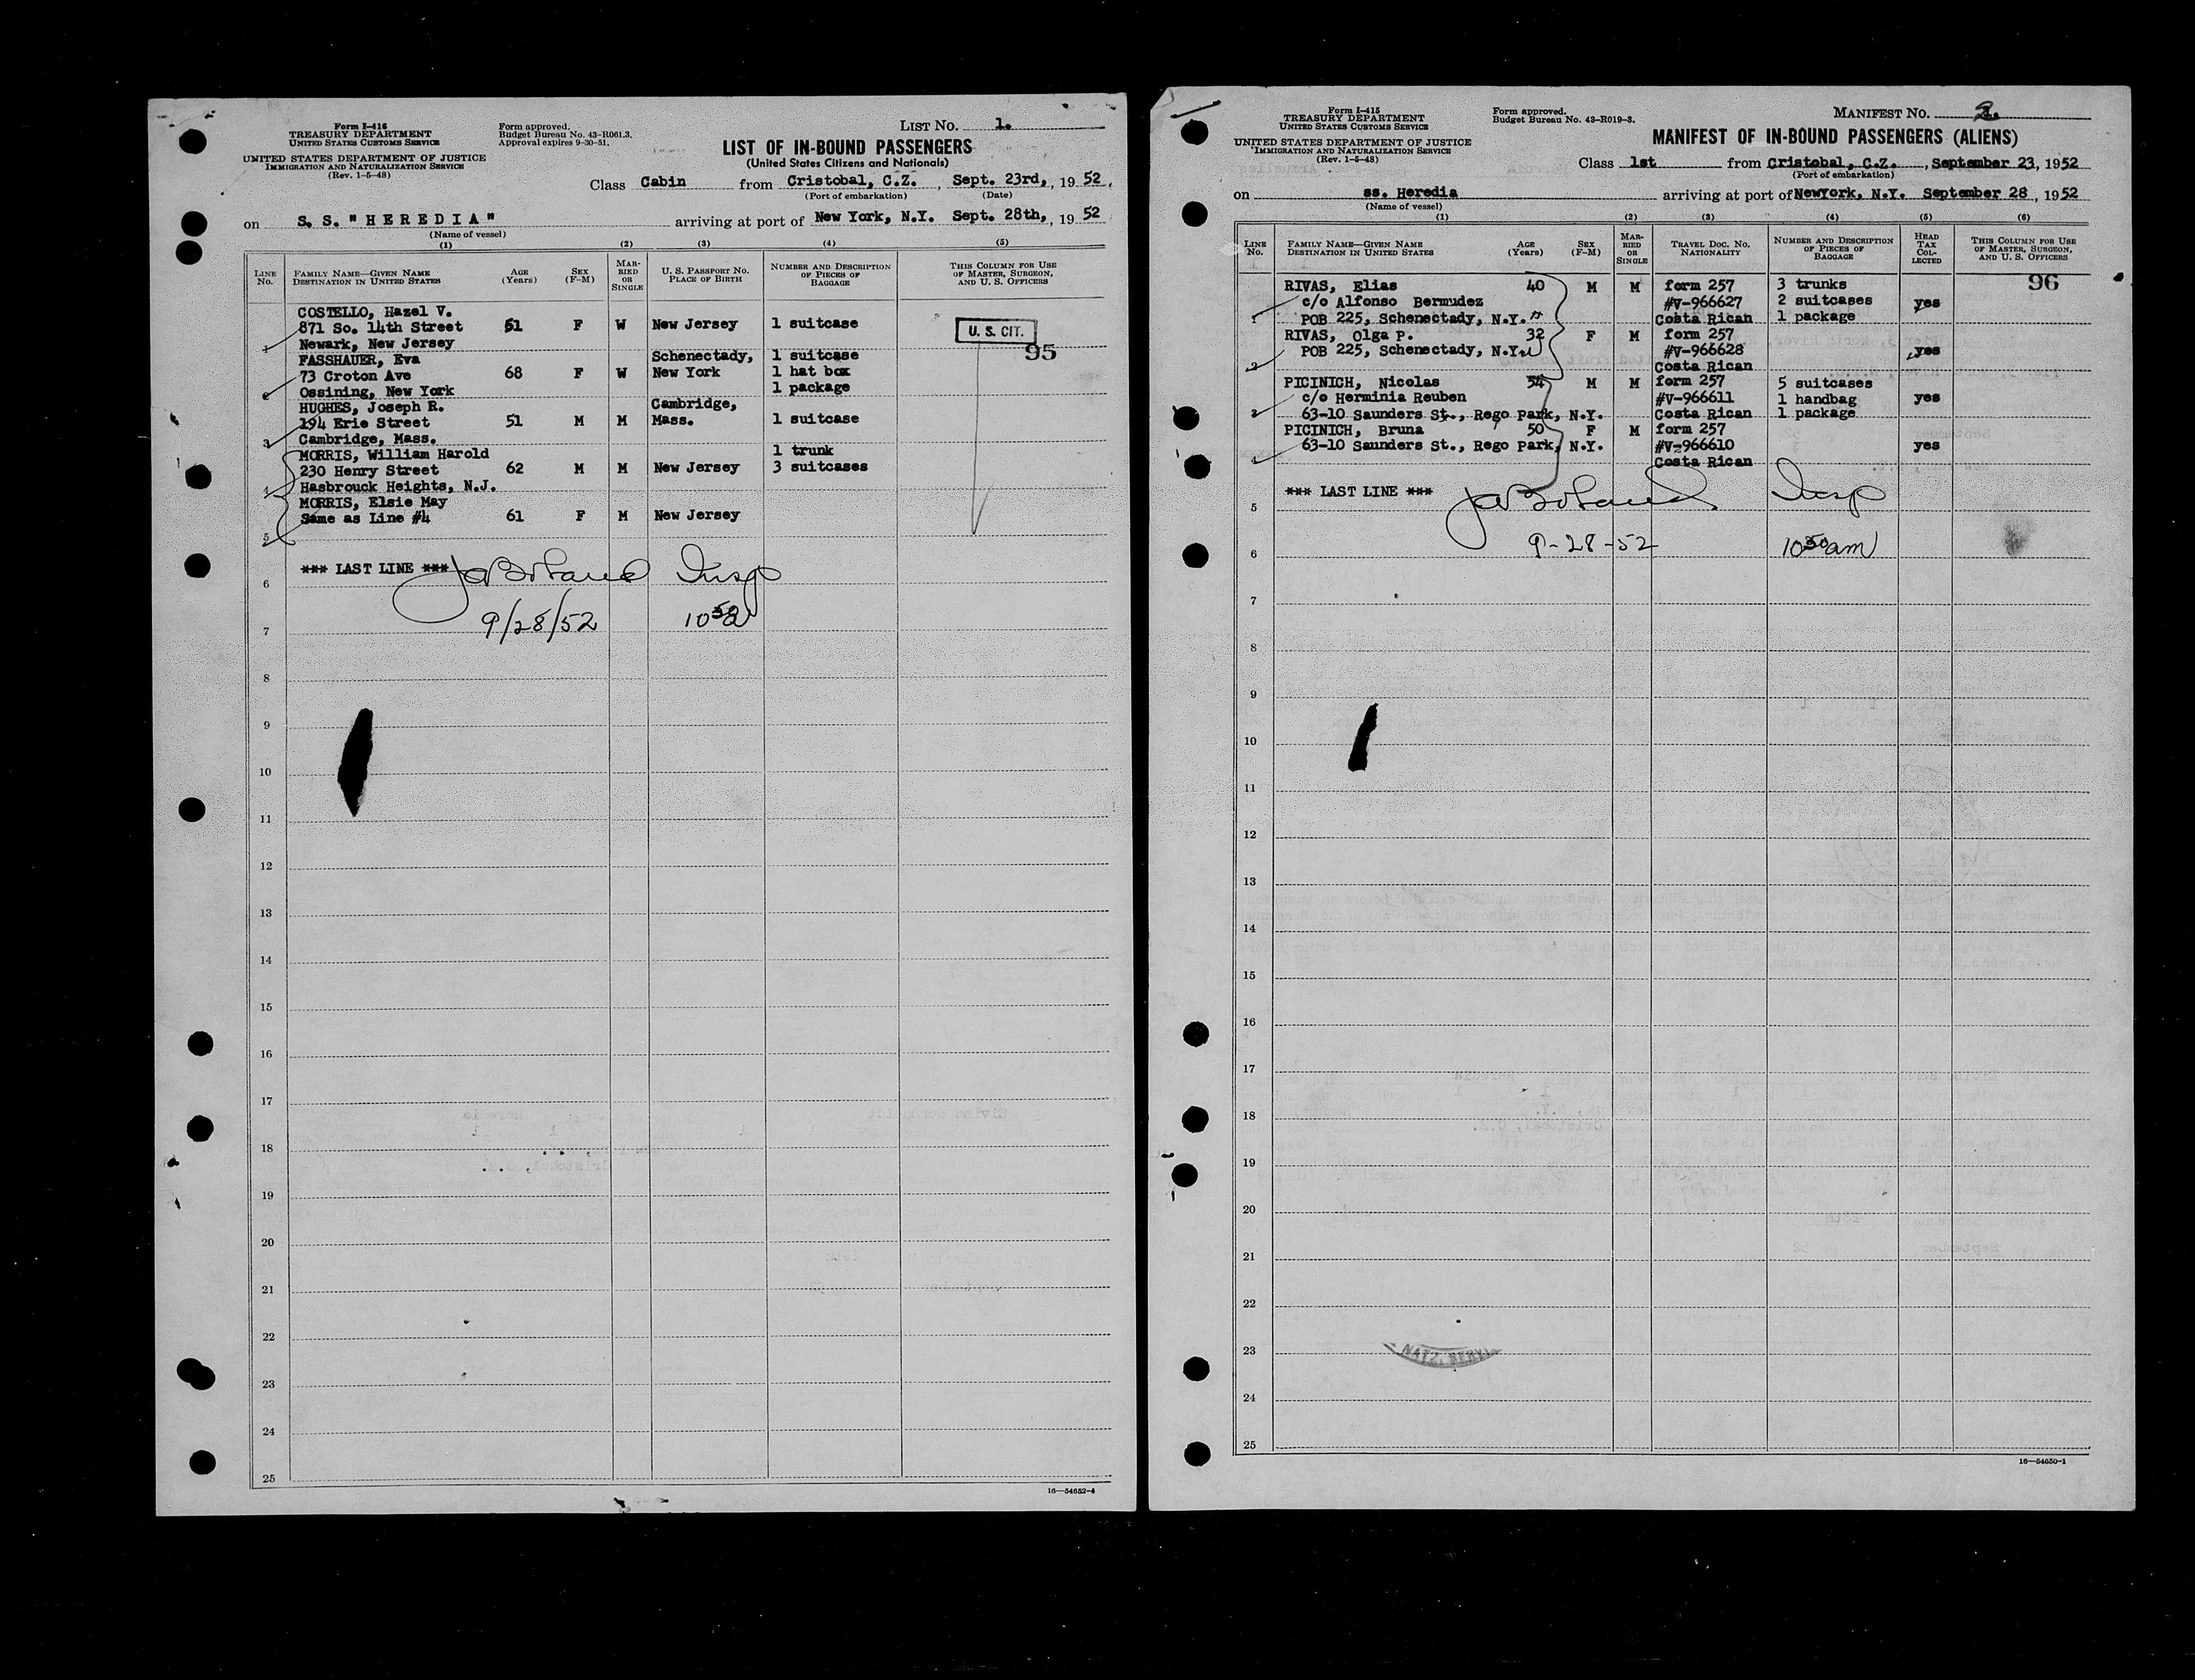 Form I-416
TREASURY DEPARTMENT
UNITED STATES CUSTOMS SERVICE
UNITED STATES DEPARTMENT OF JUSTICE
IMMIGRATION AND NATURALIZATION SERVICE
(Rev. 1-5-48)
Form approved.
Budget Bureau No. 43-R061.3.
Approval expires 9-30-51.
LIST NO. 1.
LIST OF IN-BOUND PASSENGERS
(United States Citizens and Nationals)
Class Cabin from Cristobal, C.Z., Sept. 23rd, 1952,
(Port of embarkation) (Date)
on S. S. "HEREDIA" arriving at port of New York, N.Y. Sept. 28th, 1952
(Name of vessel)
(1) (2) (3) (4) (5)
LINE No. FAMILY NAME—GIVEN NAME DESTINATION IN UNITED STATES AGE (Years) SEX (F-M) MARRIED OR SINGLE U. S. PASSPORT NO. PLACE OF BIRTH NUMBER AND DESCRIPTION OF PIECES OF BAGGAGE THIS COLUMN FOR USE OF MASTER, SURGEON, AND U. S. OFFICERS
COSTELLO, Hazel V.
871 So. 14th Street 51 F W New Jersey 1 suitcase U. S. CIT.
1 Newark, New Jersey
95
FASSHAUER, Eva Schenectady, 1 suitcase
73 Croton Ave 68 F W New York 1 hat box
2 Ossining, New York 1 package
HUGHES, Joseph R. Cambridge,
194 Erie Street 51 M M Mass. 1 suitcase
3 Cambridge, Mass.
MORRIS, William Harold 1 trunk
230 Henry Street 62 M M New Jersey 3 suitcases
4 Hasbrouck Heights, N.J.
MORRIS, Elsie May
Same as Line #4 61 F M New Jersey
5
*** LAST LINE *** Insp
6
9/28/52 10 50 a
7
8
9
10
11
12
13
14
15
16
17
18
19
20
21
22
23
24
25
16—54652-4
Form I-415
TREASURY DEPARTMENT
UNITED STATES CUSTOMS SERVICE
UNITED STATES DEPARTMENT OF JUSTICE
IMMIGRATION AND NATURALIZATION SERVICE
(Rev. 1-5-48)
Form approved.
Budget Bureau No. 43-R019-3.
MANIFEST NO. 2.
MANIFEST OF IN-BOUND PASSENGERS (ALIENS)
Class 1st from Cristobal, C.Z., September 23, 1952
(Port of embarkation)
on ss. Heredia arriving at port of NewYork, N.Y. September 28, 1952
(Name of vessel)
(1) (2) (3) (4) (5) (6)
LINE No. FAMILY NAME—GIVEN NAME DESTINATION IN UNITED STATES AGE (Years) SEX (F-M) MARRIED OR SINGLE TRAVEL DOC. NO. NATIONALITY NUMBER AND DESCRIPTION OF PIECES OF BAGGAGE HEAD TAX COLLECTED THIS COLUMN FOR USE OF MASTER, SURGEON, AND U. S. OFFICERS
96
RIVAS, Elias 40 M M form 257 3 trunks
c/o Alfonso Bermudez #V-966627 2 suitcases yes
1 POB 225, Schenectady, N.Y. Costa Rican 1 package
RIVAS, Olga P. 32 F M form 257
POB 225, Schenectady, N.Y. #V-966628 yes
2 Costa Rican
PICINICH, Nicolas 54 M M form 257 5 suitcases
c/o Herminia Reuben #V-966611 1 handbag yes
3 63-10 Saunders St., Rego Park, N.Y. Costa Rican 1 package
PICINICH, Bruna 50 F M form 257
63-10 Saunders St., Rego Park, N.Y. #V-966610 yes
4 Costa Rican
*** LAST LINE *** Insp
5
9-28-52 10 50 am
6
7
8
9
10
11
12
13
14
15
16
17
18
19
20
21
22
23 NATZ. SERVI
24
25
16—54650-1